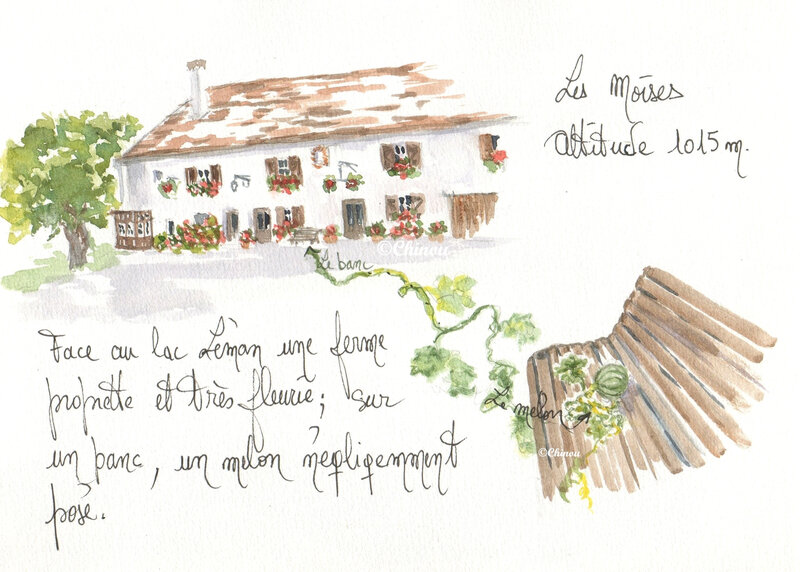 Les Moïses
altitude 1015 m.
©Chinou
Le banc
Face au lac Léman une ferme
proprette et très fleurie; sur
un banc, un melon négligemment
posé.
Le melon
©Chinou